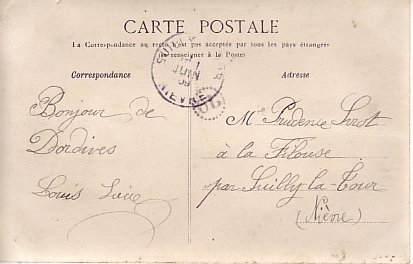 CARTE POSTALE
La Correspondance au recto n'est pas acceptée par tous les pays étrangers
(se renseigner à la Poste)
Correspondance
Adresse
SUILLY
JUIN
09
NIEVRE
OL
Bonjour de
Dordives
Louis
Me Prudence
à la
par Suilly la Tour
(Nièvre)